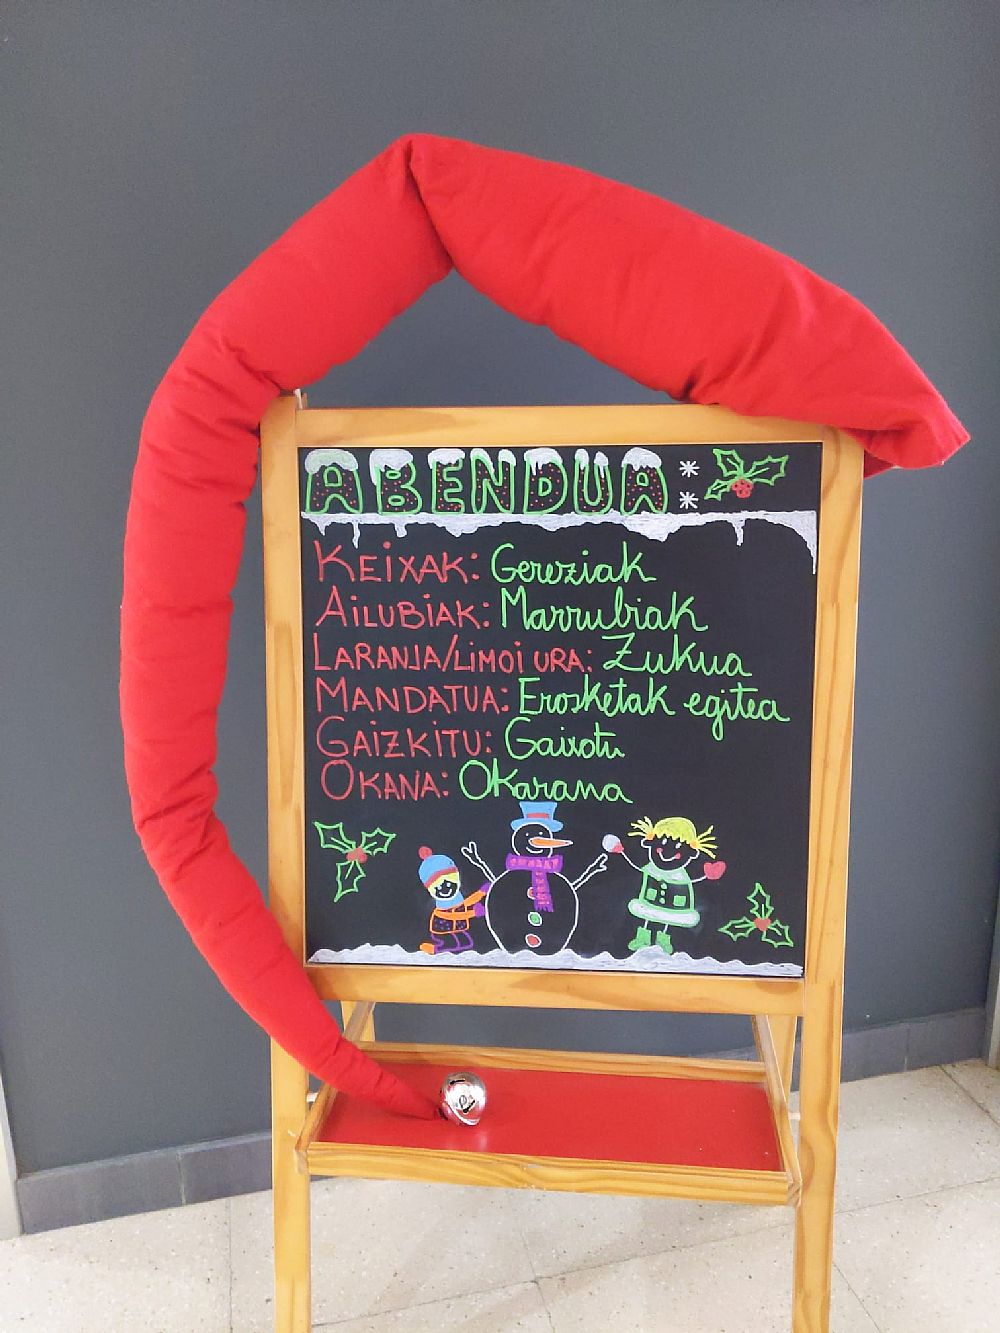 ABENDUA
KEIXAK: Gereziak
AILUBIAK: Marrubiak
LARANJA/LIMOI URA: Zukua
MANDATUA: Erosketak egitea
GAIZKITU: Gaixotu
OKANA: Okarana